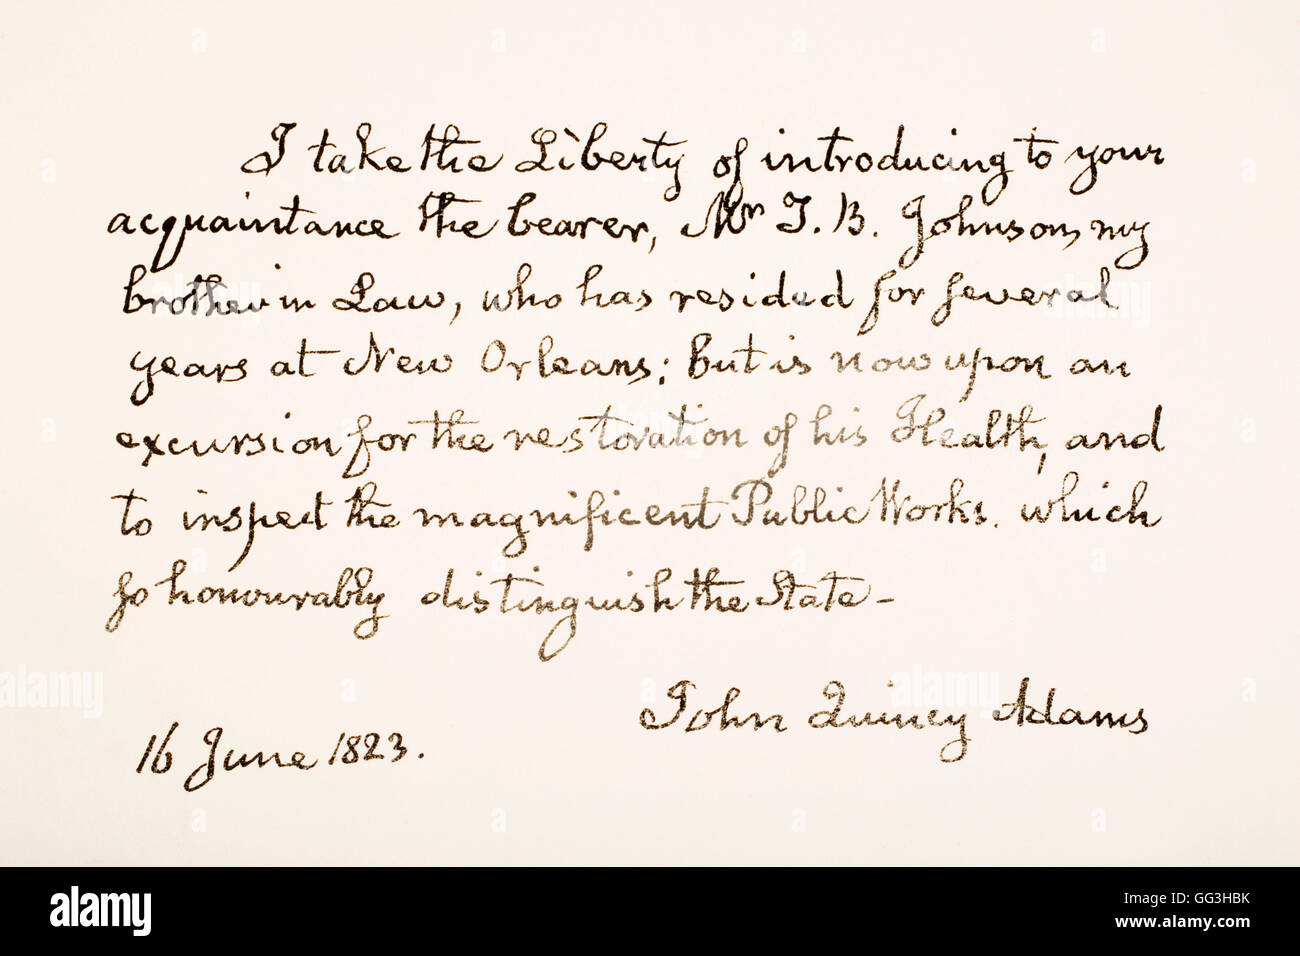 I take the Liberty of introducing to your
acquaintance the bearer, Mr T. B. Johnson, my
brother in Law, who has resided for several
years at New Orleans; but is now upon an
excursion for the restoration of his Health, and
to inspect the magnificent Public Works. which
so honourably distinguish the State –
John Quincy Adams
16 June 1823.
alamy
Image ID: GG3HBK
www.alamy.com